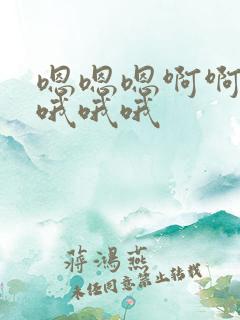 嗯嗯嗯啊啊
哦哦哦
蒋鸿燕
未经同意禁止转载